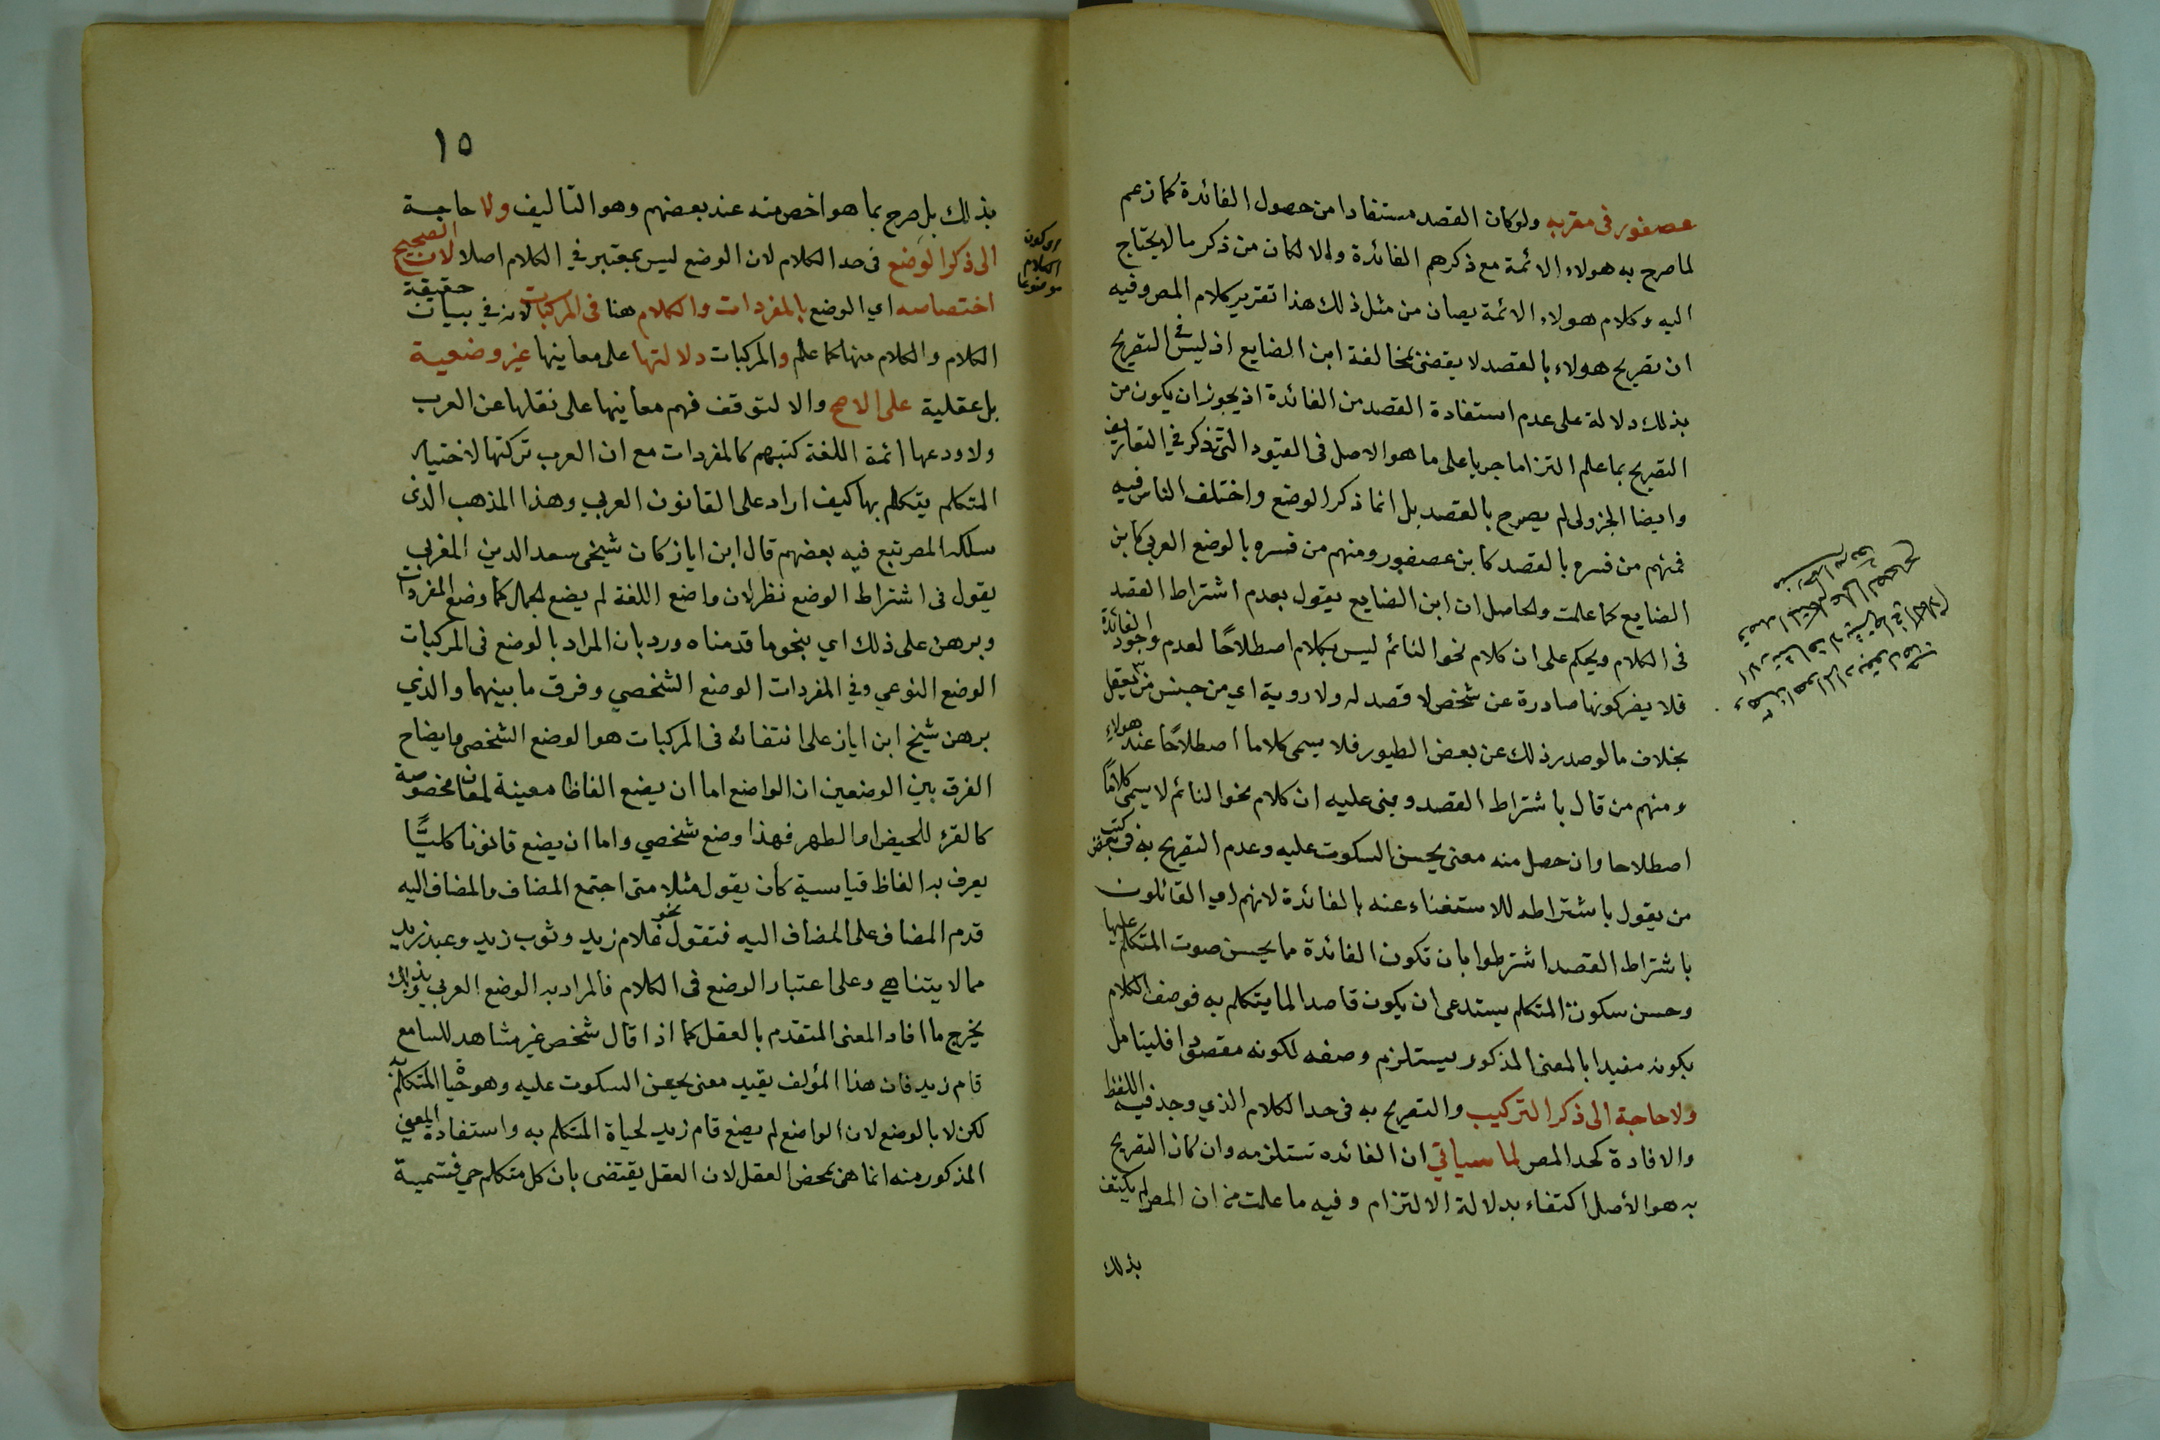 عصفور في مقربه ولو كان القصد مستفادا من حصول الفائدة كما زعم
لما صرح به هولاء الائمة مع ذكرهم الفائدة والا لكان من ذكر ما لا يحتاج
اليه وكلام هولاء الائمة يصان من مثل ذلك هذا تقرير كلام المص وفيه
ان تصريح هولاء بالقصد لا يقضى بمخالفة ابن الضايع اذ ليس في التصريح
بذلك دلالة على عدم استفادة القصد من الفائدة اذ يجوز ان يكون من
التصريح بما علم التزاما جريا على ما هو الاصل في القيود التي تذكر في التعاريف
وايضا الجزولى لم يصرح بالقصد بل انما ذكر الوضع واختلف الناس فيه
فمنهم من فسره بالقصد كابن عصفور ومنهم من فسره بالوضع العربي كابن
الضايع كما علمت والحاصل ان ابن الضايع يقول بعدم اشتراط القصد
في الكلام ويحكم على ان كلام نحو النائم ليس بكلام اصطلاحًا لعدم وجود الفائدة
فلا يضر كونها صادرة عن شخص لا قصد له ولا روية اي من جنس من يعقل
بخلاف ما لو صدر ذلك عن بعض الطيور فلا يسمى كلاما اصطلاحًا عند هولاء
ومنهم من قال باشتراط القصد وبنى عليه ان كلام نحو النائم لا يسمى كلامًا
اصطلاحا وان حصل منه معنى يحسن السكوت عليه وعدم التصريح به في كتب بعض
من يقول باشتراطه للاستغناء عنه بالفائدة لانهم اي القائلون
باشتراط القصد اشترطوا بان تكون الفائدة مما يحسن صوت المتكلم عليها
وحسن سكوت المتكلم يستدعى ان يكون قاصدا لما يتكلم به فوصف الكلام
بكونه مفيدا بالمعنى المذكور يستلزم وصفه لكونه مقصودا فليتامل
ولا حاجة الى ذكر التركيب والتصريح به في حد الكلام الذي وجد فيه اللفظ
والافادة كحد المص لما سياتي ان الفائده تستلزمه وان كان التصريح
به هو الأصل اكتفاء بدلالة الالتزام وفيه ما علمت من ان المص لم يكتف
بذلك
١٥
بذلك بل صرح بما هو اخص منه عند بعضهم وهو التاليف ولا حاجة
الى ذكر الوضع في حد الكلام لان الوضع ليس بمعتبر في الكلام اصلا لان الصحيح
او كون
الكلام
موضوعا
اختصاصه اي الوضع بالمفردات والكلام هنا في المركبات لانه في بيان حقيقة
الكلام والكلام منها كما علم والمركبات دلالتها على معاينها غير وضعية
بل عقلية على الاصح والا لتوقف فهم معاينها على نقلها عن العرب
ولاودعها ائمة اللغة كتبهم كالمفردات مع ان العرب تركتها لاختيار
المتكلم يتكلم بها كيف اراد على القانون العربي وهذا المذهب الذي
سلكه المص تبع فيه بعضهم قال ابن اياز كان شيخى سعد الدين المغربي
يقول في اشتراط الوضع نظر لان واضع اللغة لم يضع الجمل كما وضع المفردات
وبرهن على ذلك اي بنحو ما قدمناه ورد بان المراد بالوضع في المركبات
الوضع النوعي وفي المفردات الوضع الشخصي وفرق ما بينهما والذي
برهن شيخ ابن اياز على انتفائه في المركبات هو الوضع الشخصي وايضاح
الفرق بين الوضعين ان الواضع اما ان يضع الفاظا معينة لمعان مخصوصة
كالقرء للحيض او الطهر فهذا وضع شخصي واما ان يضع قانونا كليًّا
يعرف به الفاظ قياسية كأن يقول مثلا متى اجتمع المضاف والمضاف اليه
قدم المضاف على المضاف اليه فتقول نحو غلام زيد وثوب زيد وعبد زيد
مما لا يتناهي وعلى اعتبار الوضع في الكلام فالمراد به الوضع العربي وبذلك
يخرج ما افاد المعنى المتقدم بالعقل كما اذا قال شخص غير مشاهد للسامع
قام زيد فان هذا المؤلف يفيد معنى يحسن السكوت عليه وهو حياة المتكلم به
لكن لا بالوضع لان الواضع لم يضع قام زيد لحياة المتكلم به واستفادة المعنى
المذكور منه انما هى بمحض العقل لان العقل يقتضى بان كل متكلم حي فتسمية